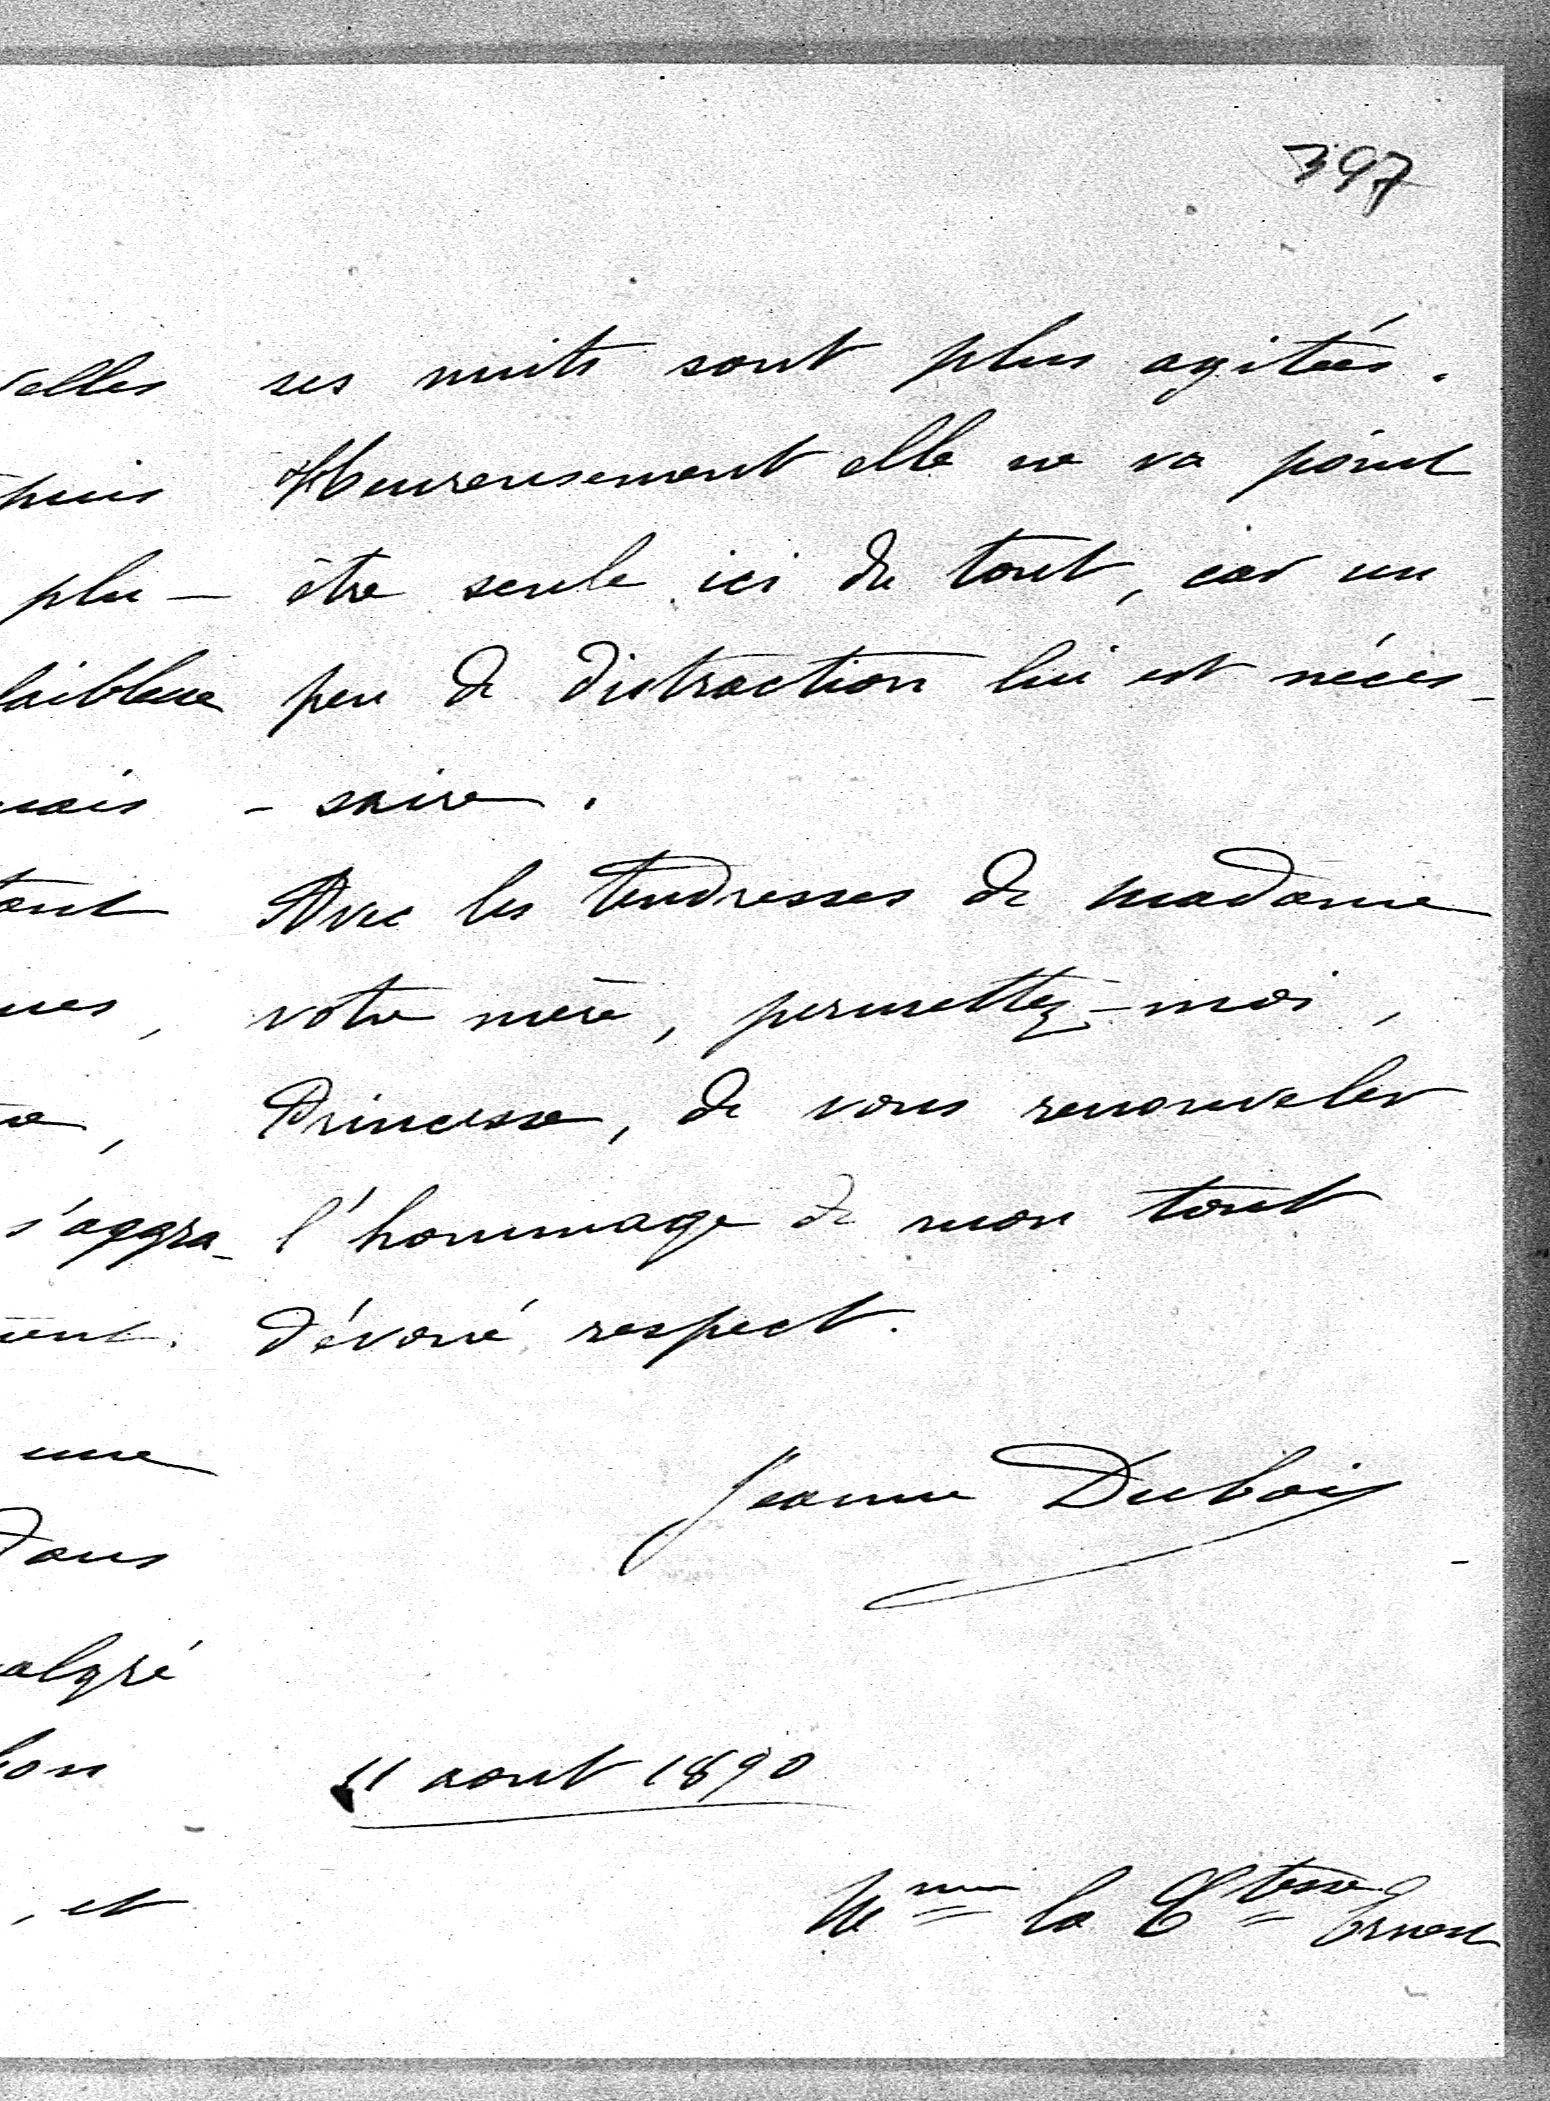 397
ses nuits sont plus agitées.
Heureusement elle ne va point
être seule ici du tout, car un
peu de distraction lui est néces-
- saire.
Avec les tendresses de madame
votre mère, permettez-moi,
Princesse, de vous renouveler
l'hommage de mon tout
dévoué respect.
Jeanne Dubois
11 aout 1890
Mme la Ctesse Ernest
velles
puis
plu -
faiblesse
mais
tout
s'aggra-
une
dans
malgré
bon
, et